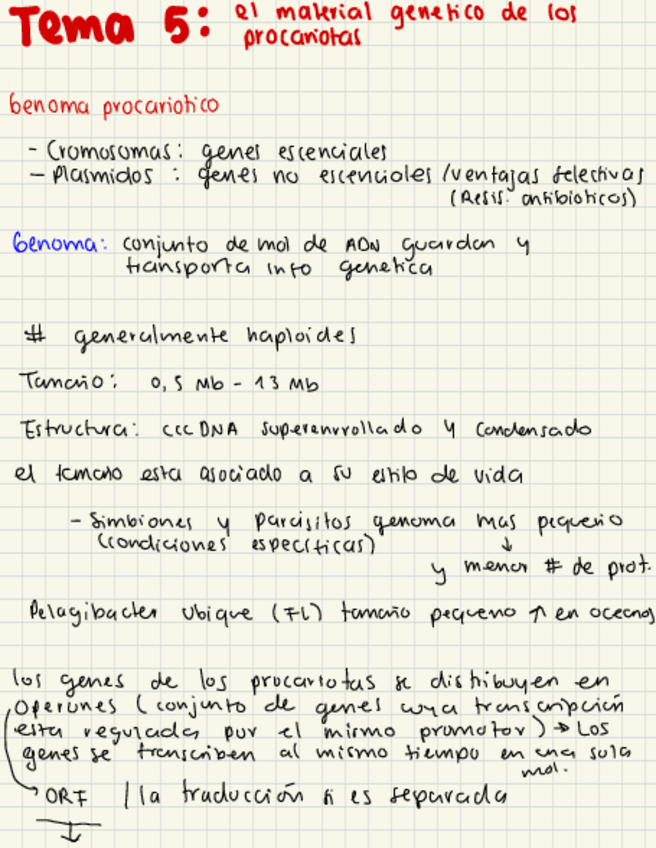 Tema 5: el material genetico de los
procariotas
Genoma procariotico
- Cromosomas: genes escenciales
- Plasmidos : genes no escenciales /ventajas selectivas
(Resis. antibioticos)
Genoma: conjunto de mol de ADN guardan y
transporta info genetica
# generalmente haploides
Tamaño: 0,5 Mb - 13 Mb
Estructura: ccc DNA superenrrollado y condensado
el tamaño esta asociado a su estilo de vida
- Simbiones y parasitos genoma mas pequeño
(condiciones especificas) ↓
y menor # de prot.
Pelagibacter ubique (FL) tamaño pequeño ↑ en oceanos
los genes de los procariotas se distribuyen en
operones (conjunto de genes cuya transcripción
esta regulada por el mismo promotor) → Los
genes se transcriben al mismo tiempo en una sola
mol.
ORF / la traducción si es separada
↓